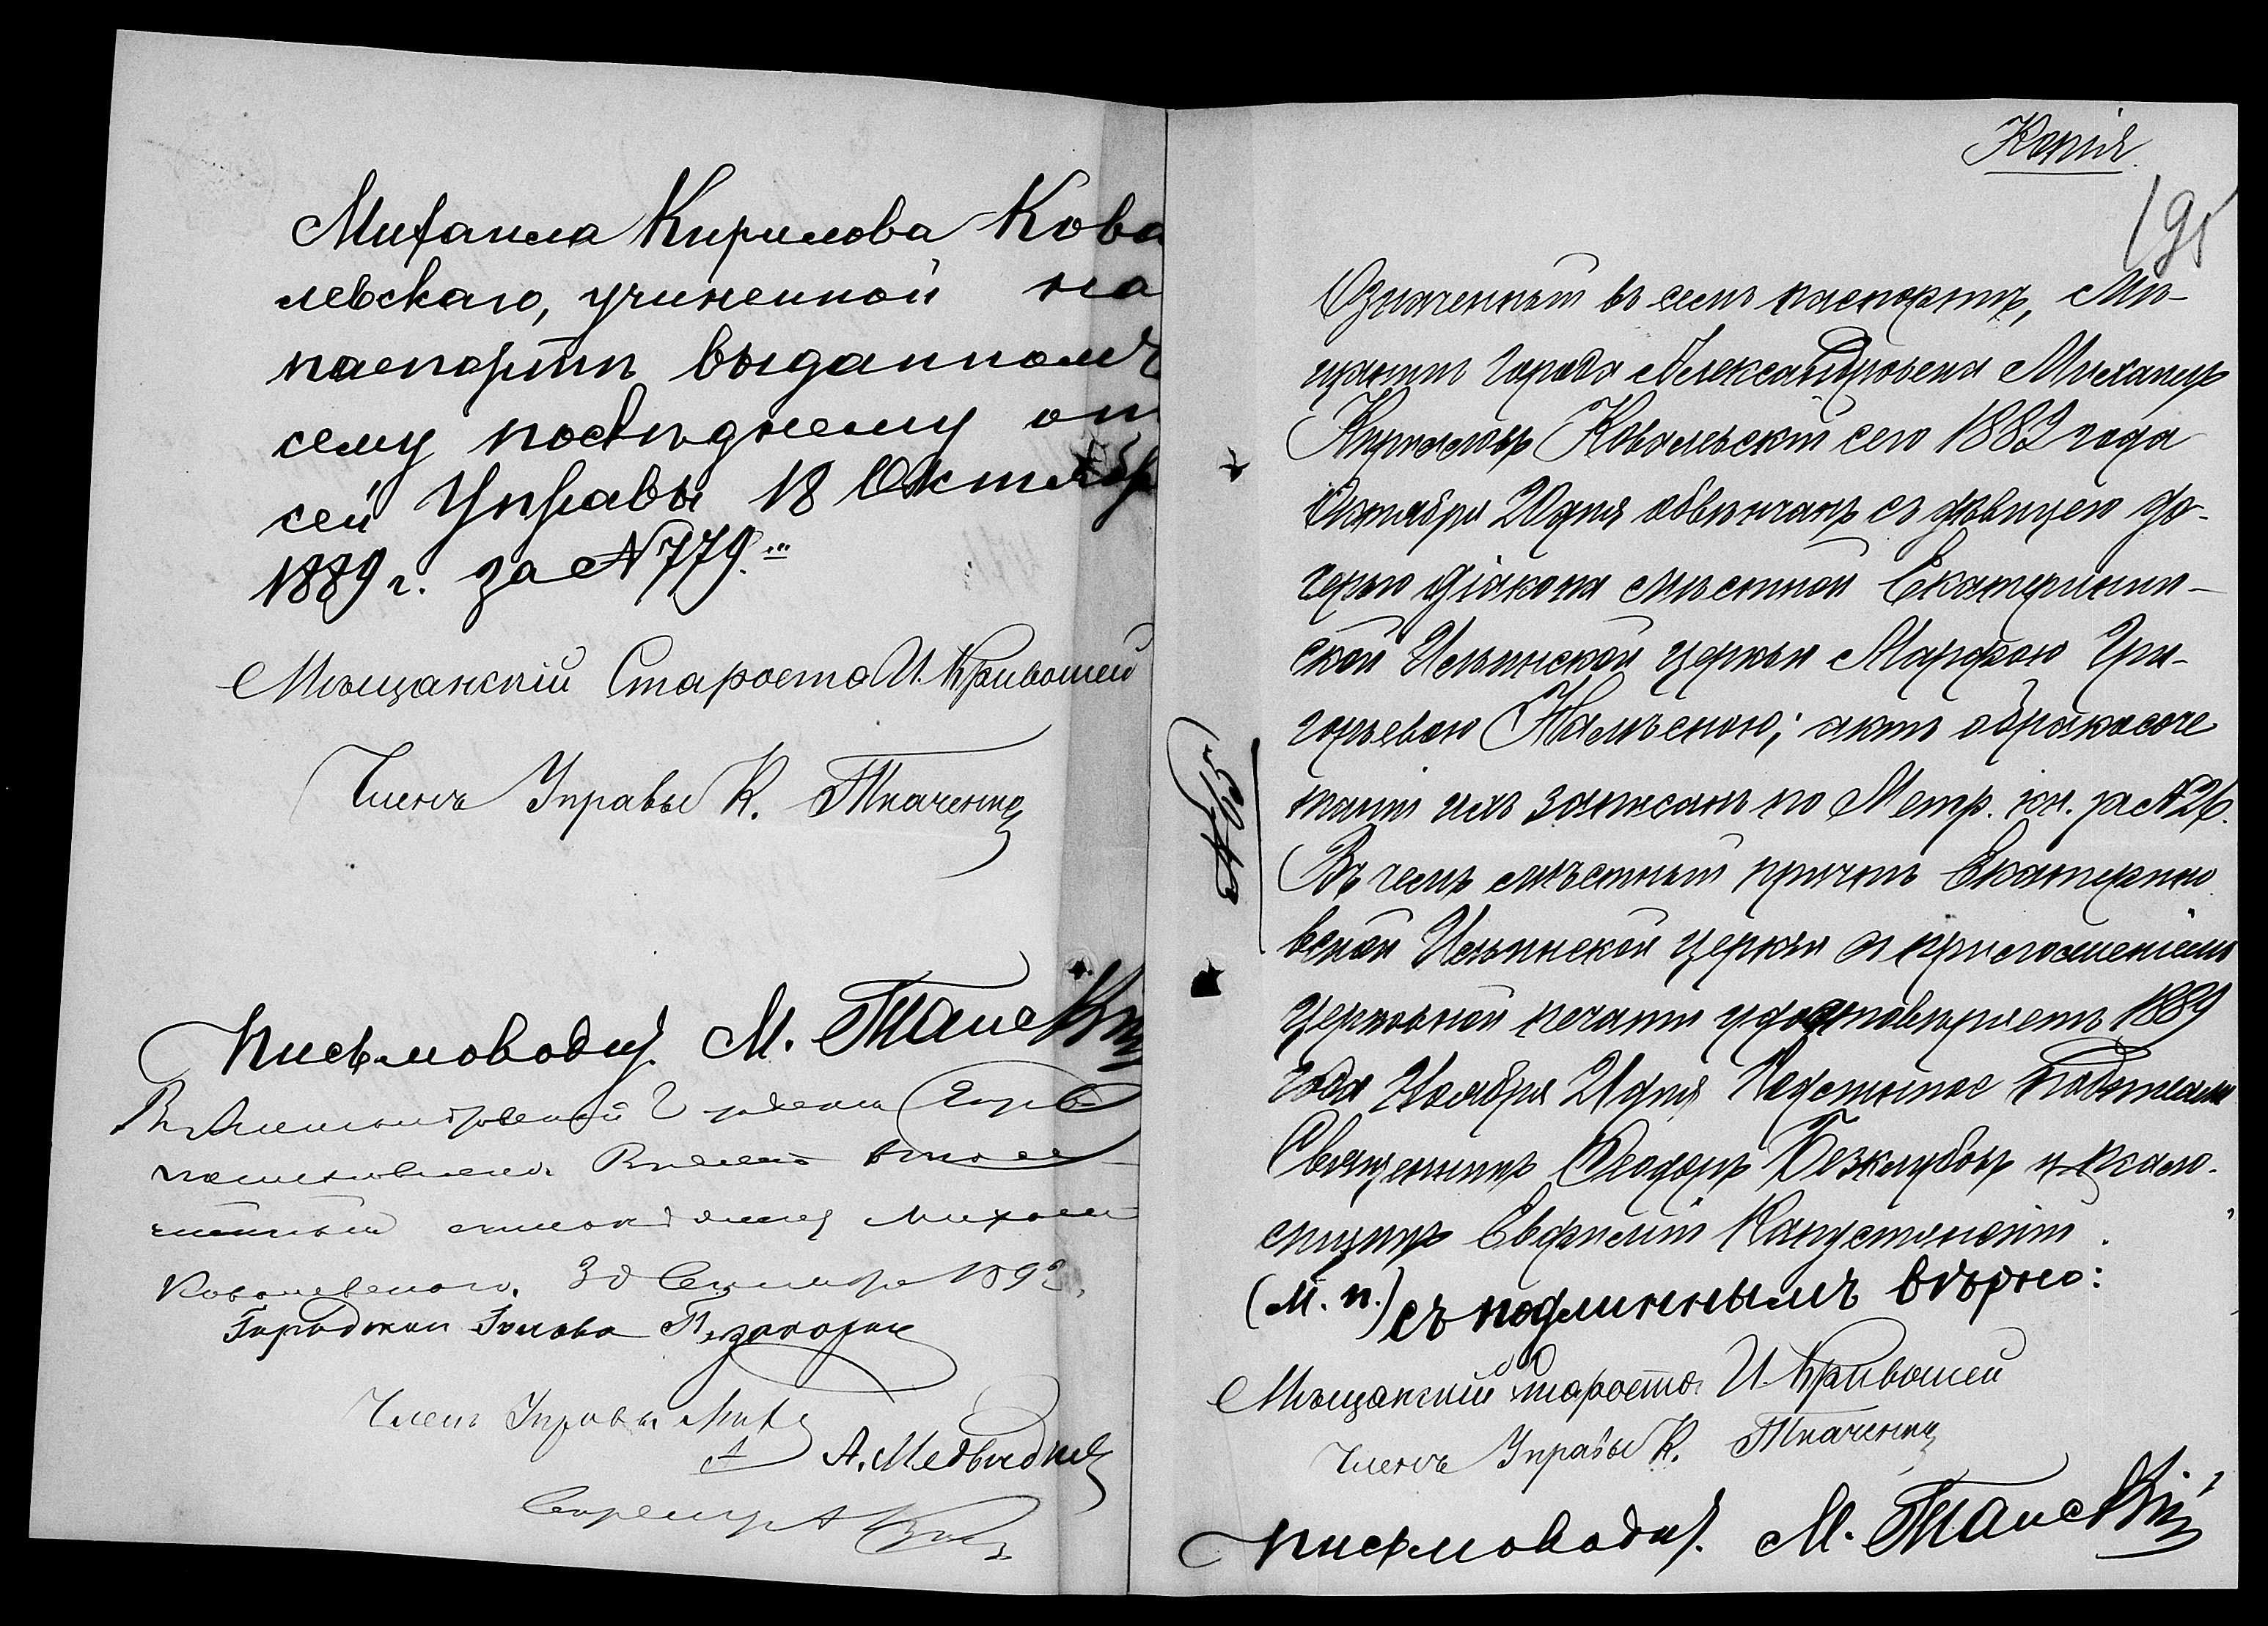 Михаила Кирилова Кова
левскаго, учиненной на
паспортѣ выданному
сему послѣднему от
сей Управы 18 Октябр
1889 г. за № 779.
Мѣщанскій Староста И. Кривошей
Членъ Управы К. Ткаченко
Письмоводи.
В Александровской Городской
30 Сентября 1892.
Городской Голова
Членъ Управы
А. Медвѣд
Секретар
Копія
195
Означенный въ семъ паспортѣ, Мѣ-
щанинъ города Александровска Михаилъ
Кириловъ Ковалевскій сего 1882 года
Октября 20 дня обвѣнчанъ съ дѣвицею до-
черью діакона мѣстной Екатеринин-
ской Ильинской церкви Марфою Гри-
горьевою; актъ о бракосоче
таніи ихъ записанъ по Метр. кн. за № 26.
Въ чемъ мѣстный причтъ Екатерино
вской Ильинской церкви съ приложеніемъ
церковной печати удостовѣряетъ 1889
года Ноября 21 дня Подлинное подписали
Священникъ Ѳеодоръ и псало-
мщикъ Евфимій Капустянскій.
(М. п.) съ подлиннымъ вѣрно:
Мѣщанскій Староста И. Кривошей
Членъ Управы К. Ткаченко
Письмоводи.